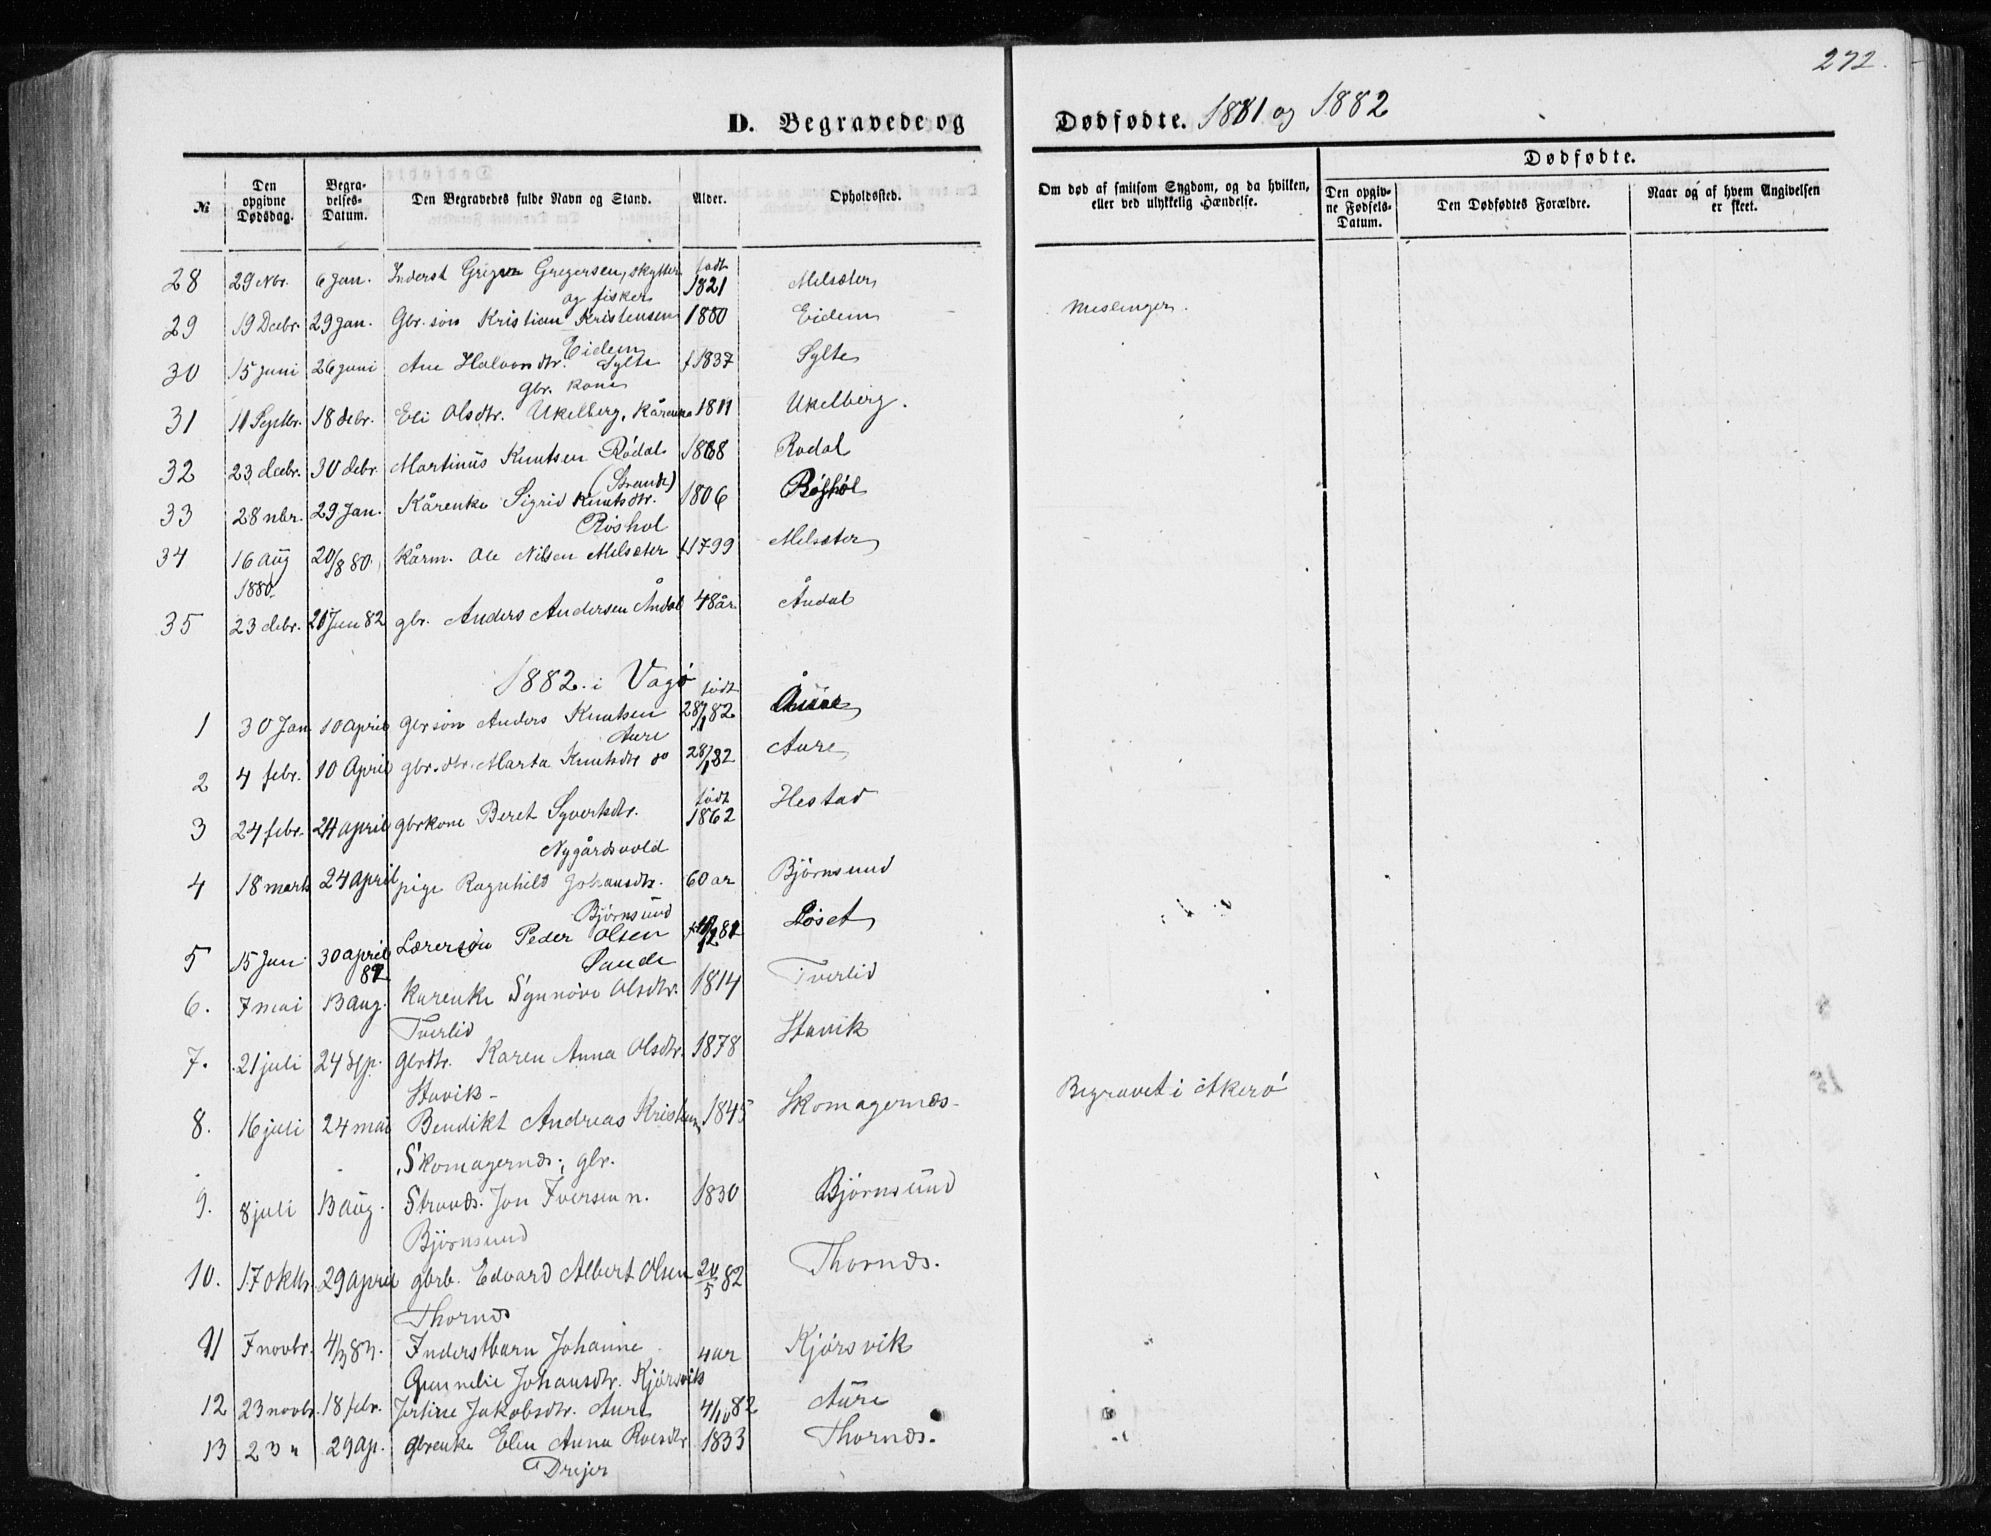 272.
D. Begravede og Dødfødte. 1881 og 1882
№ Den opgivne Dødsdag. Begravelses-Datum. Den Begravedes fulde Navn og Stand. Alder. Opholdssted. Om død af smitsom Sygdom, og da hvilken, eller ved ulykkelig Hændelse. Dødfødte. Den opgivne Fødsels-Datum. Den Dødfødtes Forældre. Naar og af hvem Angivelsen er skeet.
28 29 Nbr. 6 Jan. Inderst Gregersen, skytter født 1821 Melsæter
og fisker
29 19 Decbr. 29 Jan. Gbr. søn Kristian Kristensen 1880 Eidem Meslinger.
Eidem
30 15 juni 26 juni Ane Halvorsdtr. Sylte f 1837 Sylte
gbr. kone
31 11 Septbr. 18 debr. Eli Olsdtr. Ukelberg, Kårenke 1811 Ukelberg.
32 23 decbr. 30 debr. Martinus Knutsen Rødal 1868 Rødal
(Strands)
33 28 nbr. 29 Jan. Kårenke Sigrid Knutsdtr. 1806 Røshol
Røshol
34 16 aug 20/8 80. Kårm. Ole Nilsen Melsæter f 1799 Melsæter
1880.
35 23 debr. 21 Jun 82 gbr. Anders Andersen Åndal 48 år Åndal
1882. i Vågø
1 30 Jan 10 april gbr søn Anders Knutsen født 28/1 82 Aure
Aure
2 4 febr. 10 April gbr. dtr. Marta Knutsdtr do 28/1 82 Aure
3 24 febr. 24 april gbrkone Beret Syvertsdtr. født 1862 Hestad
Nygårdsvold
4 18 marts 24 april pige Ragnhild Johansdtr. 60 ar Bjørnsund
Bjørnsund
5 15 Jan 30 april 82 Lærersøn Peder Olsen Løset
Sande
6. 7 mai 13 aug. Karenke Synnøve Olsdtr. 1814 Tverlid
Tverlid
7. 21 juli 24 Sp. gbrdtr. Karen Anna Olsdtr. 1878 Stavik
Stavik-
8. 16 juli 24 mai Bendikt Andreas Kristens 1845 Skomagernæs- Begravet i Akerø
Skomagernæs; gbr.
9. 8 juli 13 aug. Strands. Jon Iversen. 1830 Bjørnsund
Bjørnsund
10. 17 oktbr. 29 april gbrb. Edvard Albert Olsen 20/5 82 Thornæs.
Thornæs
11 7 novbr. 4/3 83. Inderstbarn Johanne 4 ar Kjørsvik
Gunnelie Johansdtr. Kjørsvik
12 23 novbr. 18 febr. Jertine Jakobsdtr. Aure 4/10 82 Aure
13 23 " 29 ap. gbrenke Elen Anna Roesdtr 1833 Thornæs.
Drejer